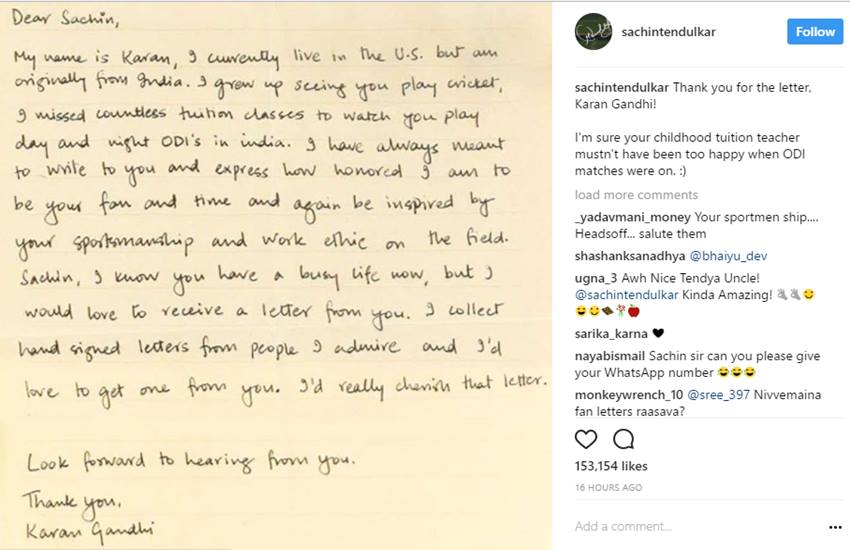 Dear Sachin,
My name is Karan, I currently live in the U.S. but am
originally from India. I grew up seeing you play cricket,
I missed countless tuition classes to watch you play
day and night ODI's in india. I have always meant
to write to you and express how honored I am to
be your fan and time and again be inspired by
your sportsmanship and work ethic on the field.
Sachin, I know you have a busy life now, but I
would love to receive a letter from you. I collect
hand signed letters from people I admire and I'd
love to get one from you. I'd really cherish that letter.
Look forward to hearing from you.
Thank you,
Karan Gandhi
sachintendulkar
Follow
sachintendulkar Thank you for the letter,
Karan Gandhi!
I'm sure your childhood tuition teacher
mustn't have been too happy when ODI
matches were on. :)
load more comments
_yadavmani_money Your sportmen ship....
Headsoff... salute them
shashanksanadhya @bhaiyu_dev
ugna_3 Awh Nice Tendya Uncle!
@sachintendulkar Kinda Amazing!
sarika_karna
nayabismail Sachin sir can you please give
your WhatsApp number
monkeywrench_10 @sree_397 Nivvemaina
fan letters raasava?
153,154 likes
16 HOURS AGO
Add a comment...